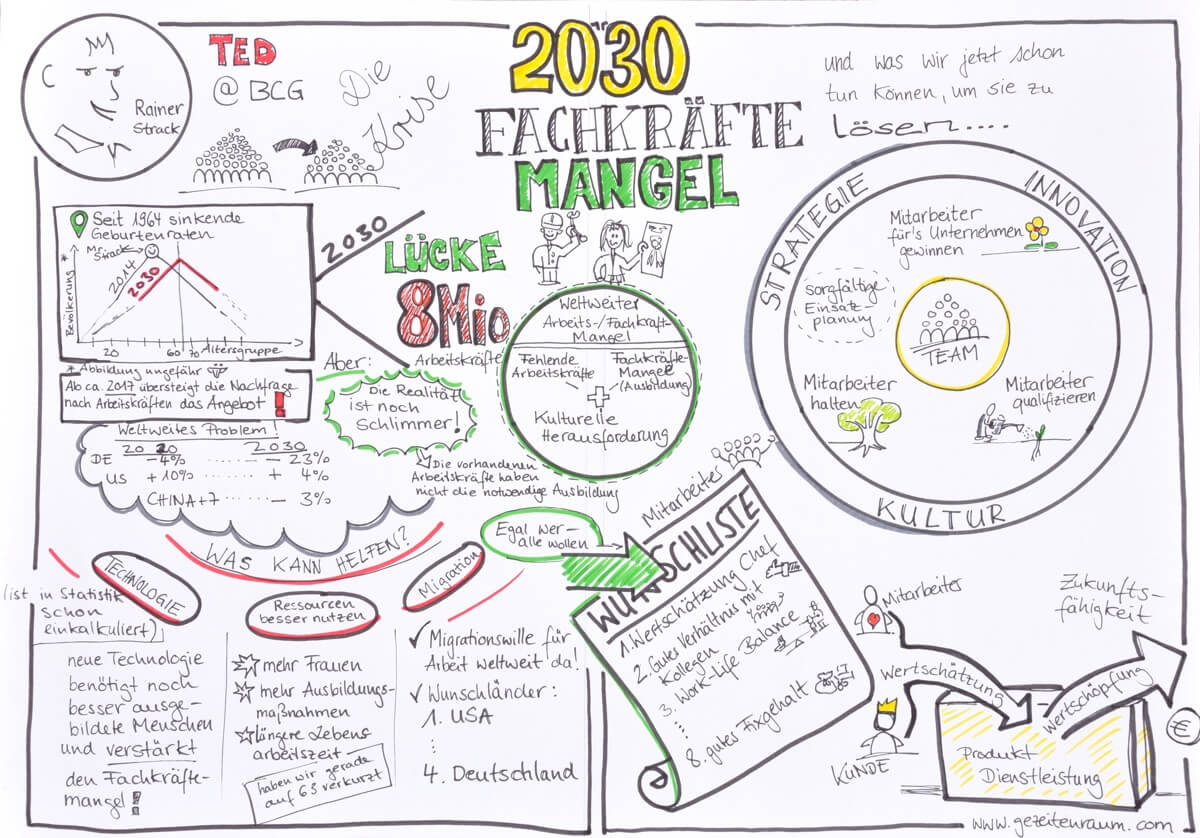 Rainer
Strack
TED
@ BCG
Die
Krise
2030
FACHKRÄFTE
MANGEL
und was wir jetzt schon
tun können, um sie zu
Lösen....
Seit 1964 sinkende
Geburtenraten
Mr. Strack
2014
2030
Bevölkerung *
20
60
70
Altersgruppe
* Abbildung ungefähr
Ab ca. 2017 übersteigt die Nachfrage
nach Arbeitskräften das Angebot !
2030
LÜCKE
8Mio
Arbeitskräfte
Aber:
Die Realität
ist noch
Schlimmer!
Die vorhandenen
Arbeitskräfte haben
nicht die notwendige Ausbildung
Weltweites Problem!
2020 2030
DE - 4% ........ - 23%
US + 10% ........ + 4%
CHINA + 7 ........ - 3%
Weltweiter
Arbeits-/Fachkraft-
Mangel
Fehlende
Arbeitskräfte
Fachkräfte-
Mangel
(Ausbildung)
+
Kulturelle
Herausforderung
STRATEGIE
INNOVATION
KULTUR
Mitarbeiter
für's Unternehmen
gewinnen
sorgfältige
Einsatz-
planung
TEAM
Mitarbeiter
halten
Mitarbeiter
qualifizieren
WAS KANN HELFEN?
TECHNOLOGIE
(ist in Statistik
schon
einkalkuliert)
neue Technologie
benötigt noch
besser ausge-
bildete Menschen
und verstärkt
den Fachkräfte-
mangel!
Ressourcen
besser nutzen
mehr Frauen
mehr Ausbildungs-
maßnahmen
längere Lebens
arbeitszeit
haben wir gerade
auf 63 verkürzt
Migration
Migrationswille für
Arbeit weltweit da!
Wunschländer:
1. USA
4. Deutschland
Egal wer -
alle wollen
Mitarbeiter
WUNSCHLISTE
1. Wertschätzung Chef
2. Gutes Verhältnis mit
Kollegen
3. Work-Life Balance
8. gutes Fixgehalt
Mitarbeiter
Zukunfts-
fähigkeit
Wertschätzung
Wertschöpfung
KUNDE
Produkt
Dienstleistung
€
www.gezeitenraum.com